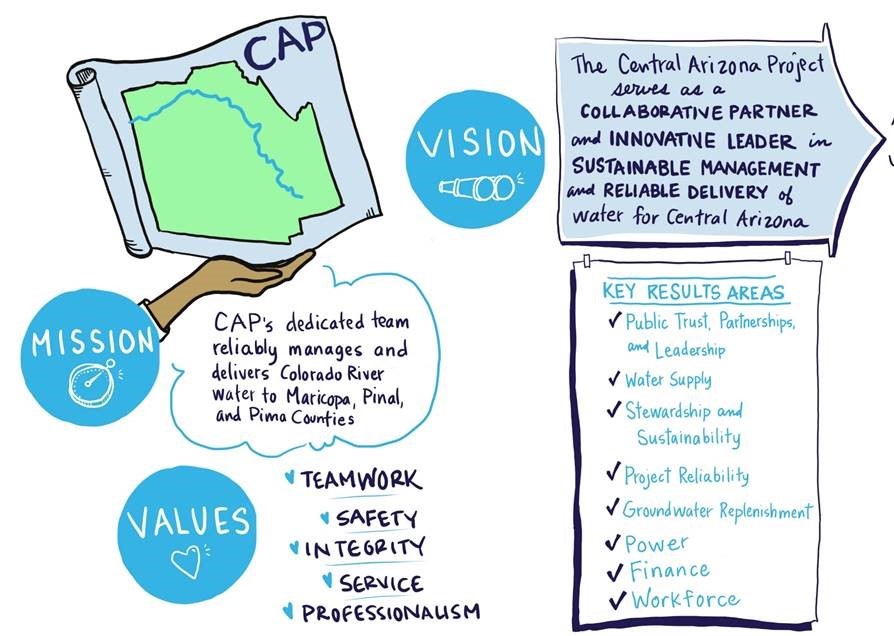 CAP
VISION
The Central Arizona Project
serves as a
COLLABORATIVE PARTNER
and INNOVATIVE LEADER in
SUSTAINABLE MANAGEMENT
and RELIABLE DELIVERY of
water for Central Arizona
MISSION
CAP's dedicated team
reliably manages and
delivers Colorado River
water to Maricopa, Pinal,
and Pima Counties
VALUES
TEAMWORK
SAFETY
INTEGRITY
SERVICE
PROFESSIONALISM
KEY RESULTS AREAS
Public Trust, Partnerships,
and Leadership
Water Supply
Stewardship and
Sustainability
Project Reliability
Groundwater Replenishment
Power
Finance
Workforce